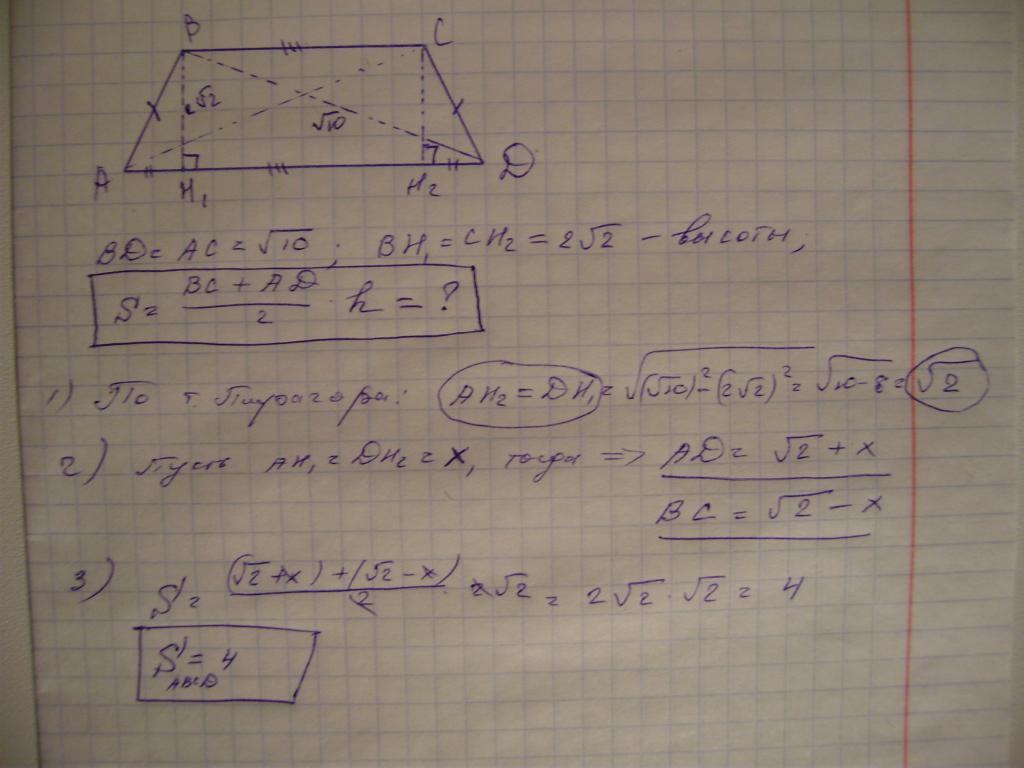 B C
√2
√10
A H₁ H₂ D
BD = AC = √10; BH₁ = CH₂ = 2√2 – высоты;
S = (BC + AD)/2 · h = ?
1) По т. Пифагора: AH₂ = DH₁ = √((√10)² – (2√2)²) = √(10-8) = √2
2) Пусть AH₁ = DH₂ = x, тогда => AD = √2 + x
BC = √2 – x
3) S = ((√2 + x) + (√2 – x))/2 · 2√2 = 2√2 · √2 = 4
S ABCD = 4